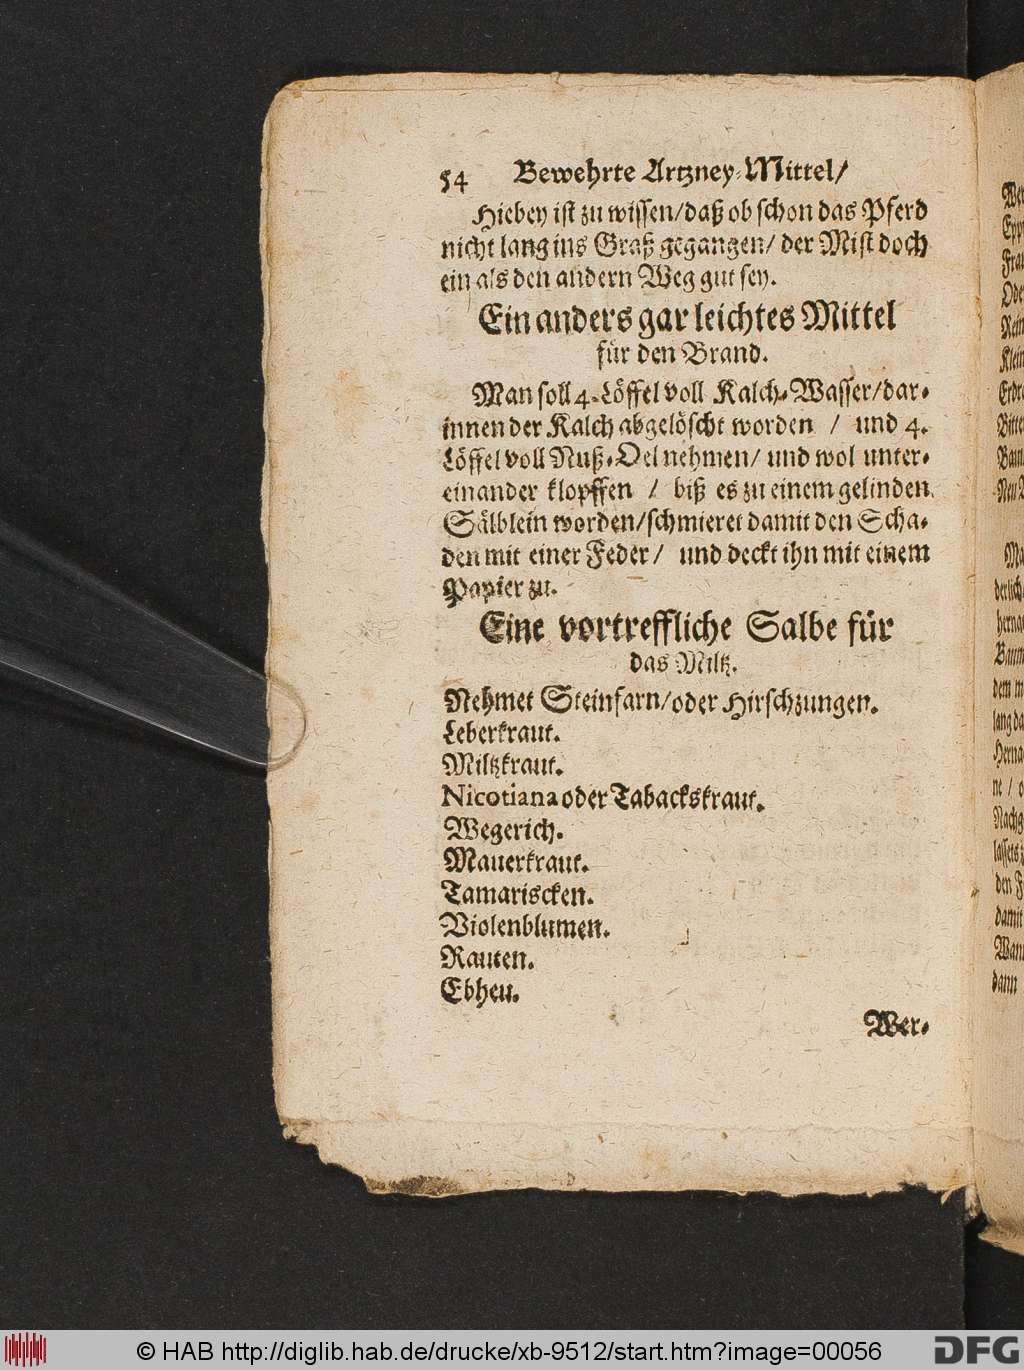 54 Bewehrte Artzney-Mittel/
Hiebey ist zu wissen/daß ob schon das Pferd
nicht lang ins Graß gegangen/ der Mist doch
ein als den andern Weg gut sey.
Ein anders gar leichtes Mittel
für den Brand.
Man soll 4. Löffel voll Kalch-Wasser/dar-
innen der Kalch abgelöscht worden / und 4.
Löffel voll Nuß-Oel nehmen/ und wol unter-
einander klopffen / biß es zu einem gelinden
Sälblein worden/schmieret damit den Scha-
den mit einer Feder/ und deckt ihn mit einem
Papier zu.
Eine vortreffliche Salbe für
das Miltz.
Nehmet Steinfarn/oder Hirschzungen.
Leberkraut.
Miltzkraut.
Nicotiana oder Tabackskraut.
Wegerich.
Mauerkraut.
Tamariscken.
Violenblumen.
Rauten.
Ebheu.
Wer-
© HAB http://diglib.hab.de/drucke/xb-9512/start.htm?image=00056
DFG